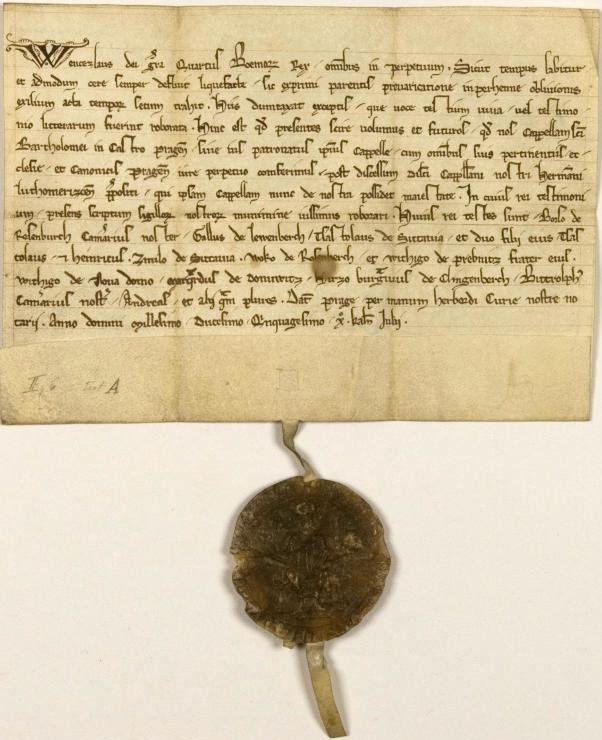 Wenczlaus dei gra Quartus Boemor Rex omibus in perpetuum. Sicut tempus labitur
et admodum cere semper defluit liquefacte sic exprimi parentis prevaricatione in perhenne oblivionis
exilium acta tempor secum trahit. Hiis dumtaxat exceptis que voce testium viva vel testimo
nio litterarum fuerint roborata. Hinc est qd presentes scire volumus et futuros qd nos Cappellam sci
Bartholomei in Castro pragen sive ius patronatus ipsius Cappelle cum omibus suis pertinentiis et
clesie et Canonicis Pragen iure perpetuo conferimus post discessum dilci Cappllani nostri Hermani
luthomericen ppositi qui ipsam Cappellam nunc de nostra possidet maiestate. In cuius rei testimoni
um presens scriptum sigillor nostror munimine iussimus roborari. Huius rei testes sunt Boslo de
Rosenburch Camarius noster Gallus de lewenberch Tlas tolaus de Sittavia et duo filii eius Tlas
tolaus et heinricus Zmilo de Sittavia Woko de Rosenberch et withigo de prebnitz frater eius
withigo de Nova domo de hirzo burgravius de Clingenberch
Camarius nostr Andreas et alii qm plures. Dat Prage per manum herbordi Curie nostre no
tarii. Anno domini Millesimo Ducesimo Quinquagesimo x kaln Julii.
II, 6 A